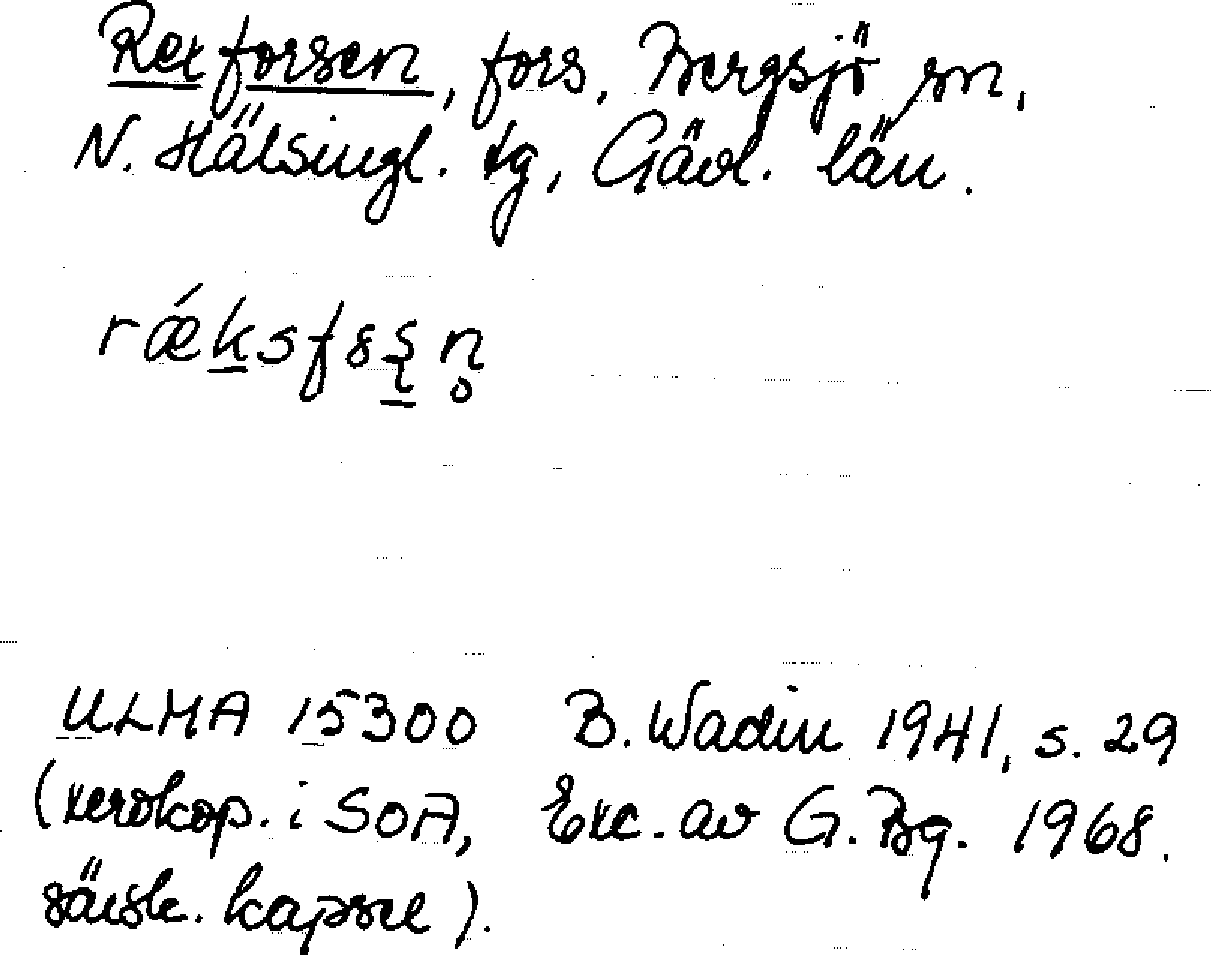 Rexforsen, fors, Bergsjö sn,
N. Hälsingl. tg, Gävl. län.
rǽksfs̨n̥
ULMA 15300 B. Wadin 1941, s. 29
(xerokop. i SOA, Exc. av G. Bg. 1968.
särsk. kapsel).